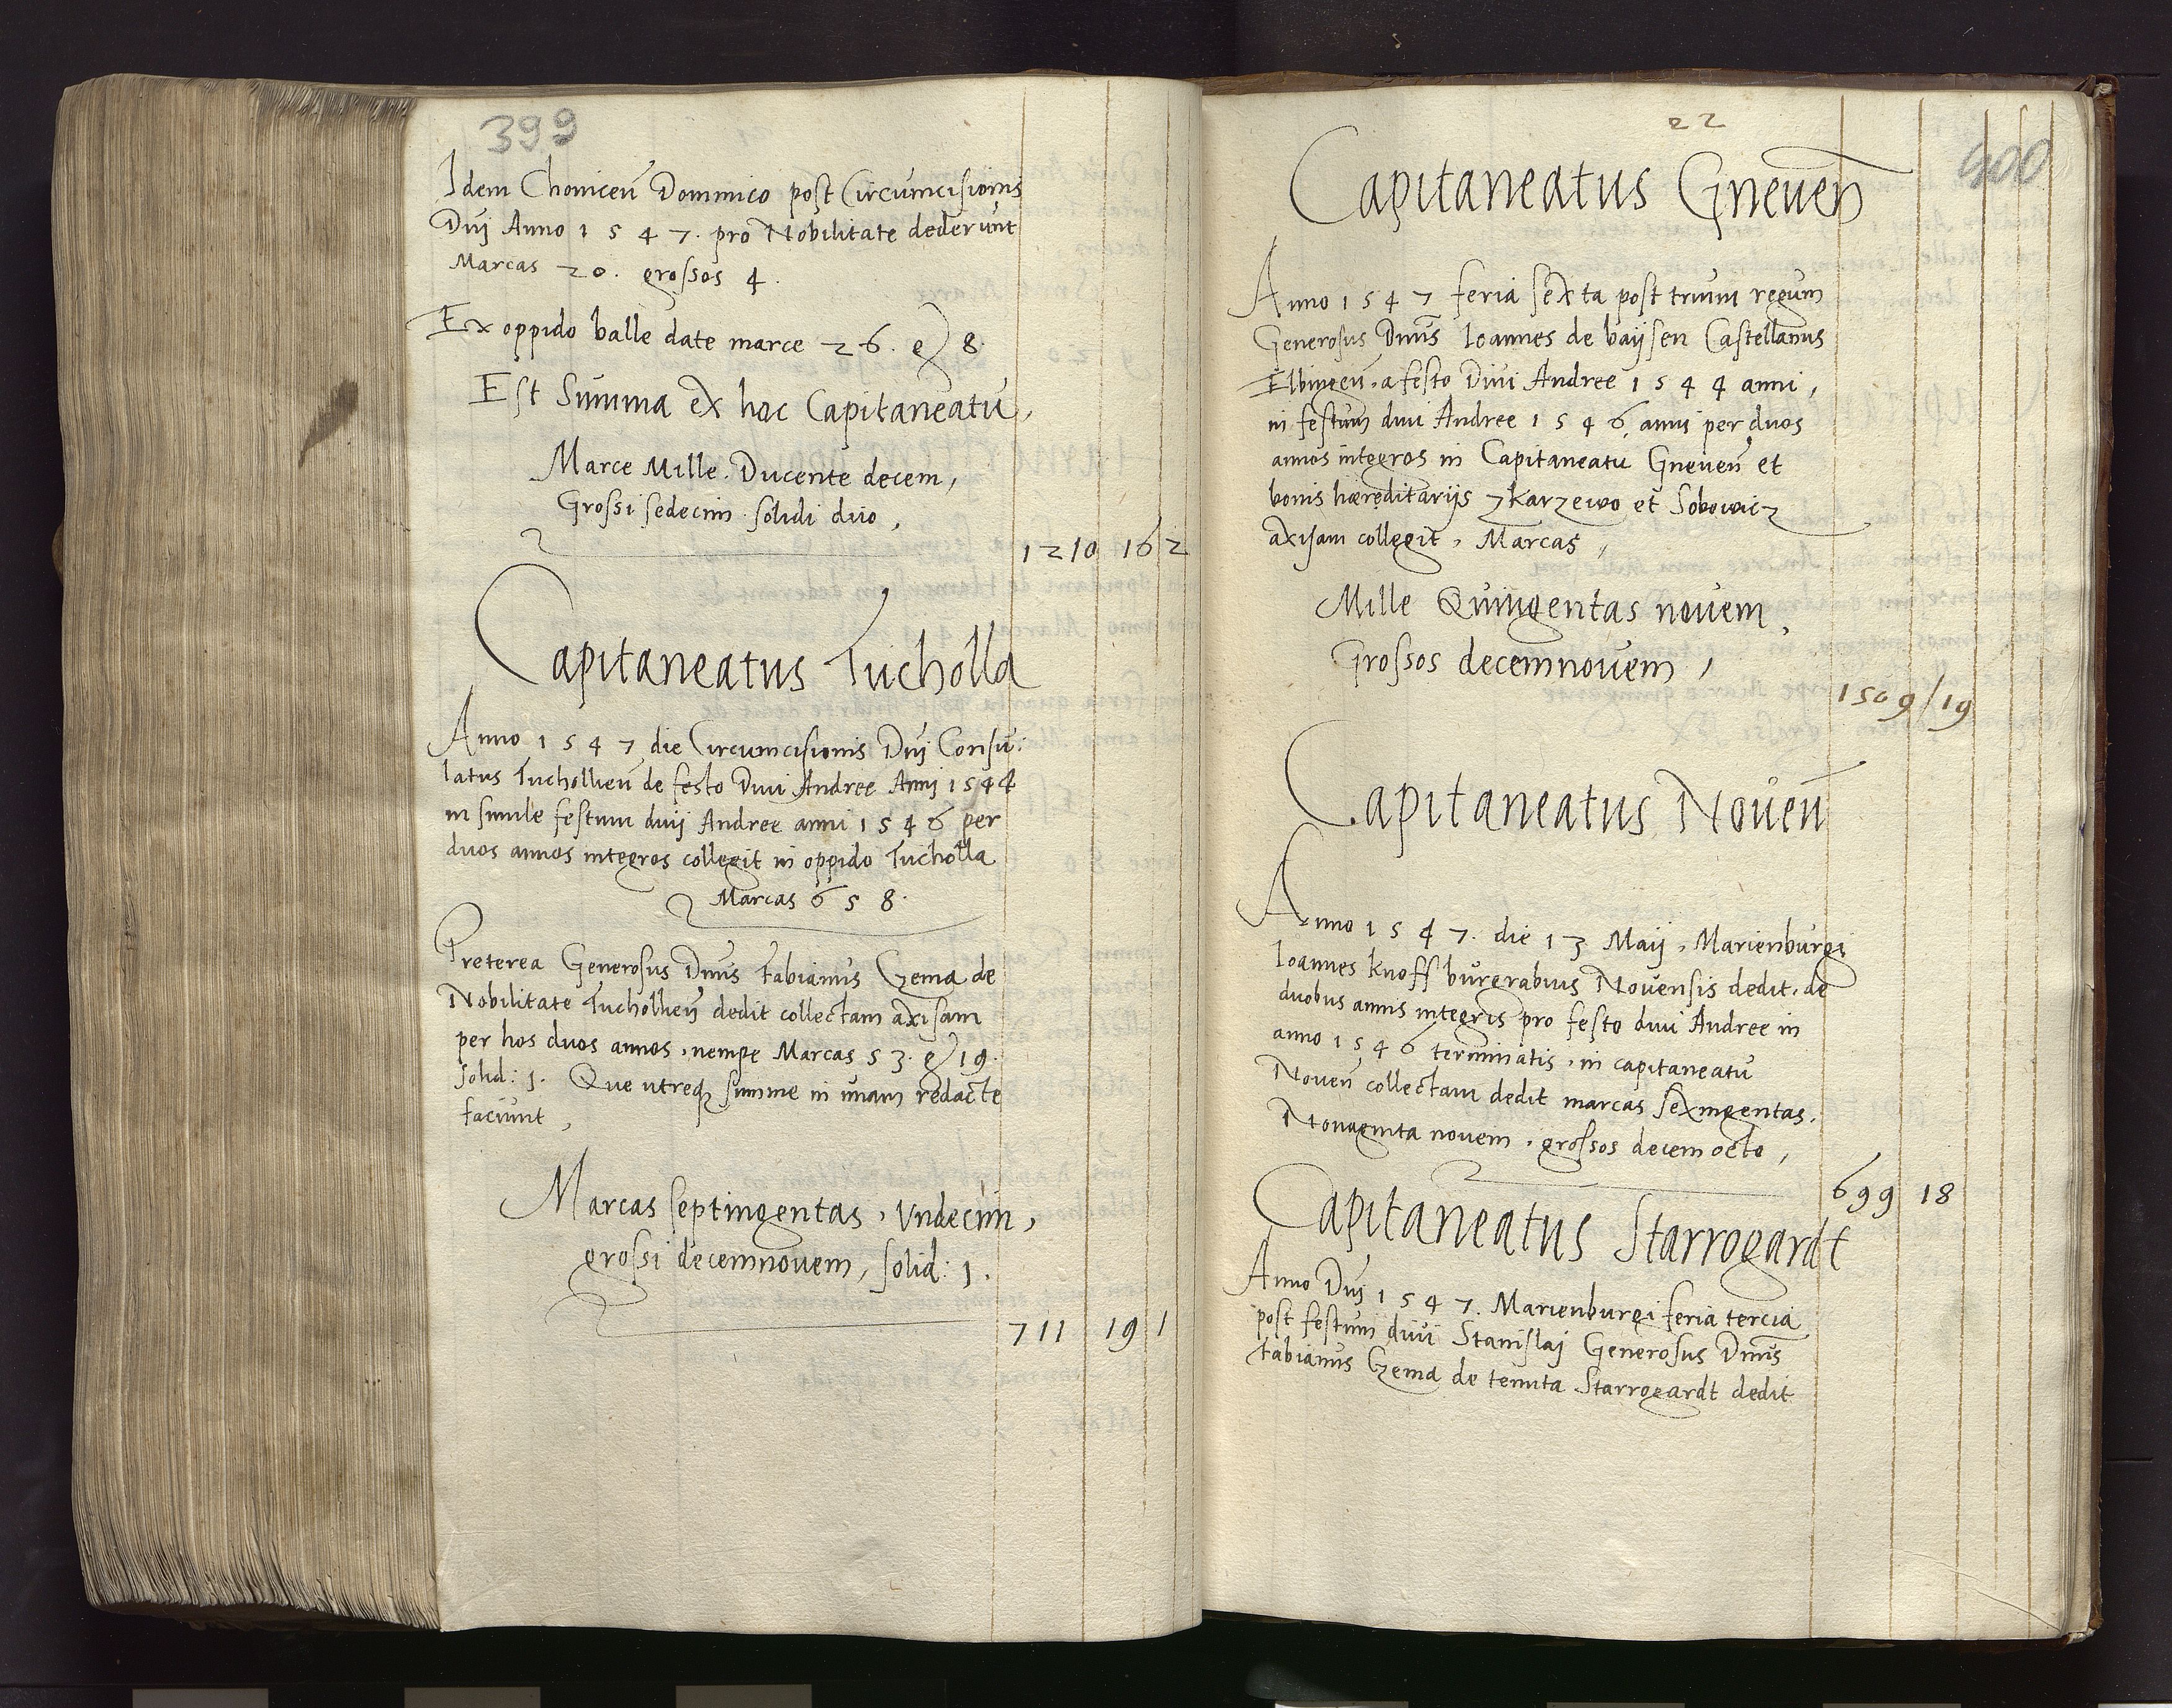 399
Idem Choniceñ Dominico post Circumcisionis
Dnj Anno 1547. pro Nobilitate dederunt
Marcas 20. grossos 4.
Ex oppido balle date marce 26. g 8
Est Summa ex hoc Capitaneatu,
Marce Mille. Ducente decem,
Grossi sedecim solidi duo,
1210 16 2
Capitaneatus Tucholla
Anno 1547 die Circumcisionis Dnj Consu:
latus Tucholieñ de festo Diui Andree Anni 1544
in simile festum diuj Andree anni 1546 per
duos annos integros collegit in oppido Tucholla
Marcas 658.
Preterea Generosus Dnus Fabianus Czema de
Nobilitate Tucholieñ dedit collectam axisam
per hos duos annos, nempe Marcas 53. g 19.
solid: 1. Que utreq3 summe in unam redacte
faciunt,
Marcas septingentas, Vndecim,
grossi decemnouem, solid: 1.
711 19 1
22
400
Capitaneatus Gneueñ
Anno 1547 feria sexta post trium regum
Generosus Dnus Ioannes de baysen Castellanus
Elbingeñ, a festo Diui Andree 1544 anni,
in festum diui Andree 1546 anni per duos
annos integros in Capitaneatu Gneueñ et
bonis hæreditarijs zkarzewo et Sobowicz
axisam collegit, Marcas,
Mille Quingentas nouem,
Grossos decemnouem,
1509/19
Capitaneatus Noueñ
Anno 1547. die 13 Maij, Marienburgi
Ioannes Knoff burgrabius Nouensis dedit, de
duobus annis integris pro festo diui Andree in
anno 1546 terminatis, in capitaneatu
Noueñ collectam dedit marcas sexingentas.
Nonaginta nouem, grossos decem octo,
699 18
Capitaneatus Starrogardt
Anno Dnj 1547. Marienburgi feria tercia
post festum diui Stanislaj Generosus Dnus
Fabianus Czema de tenuta Starrogardt dedit